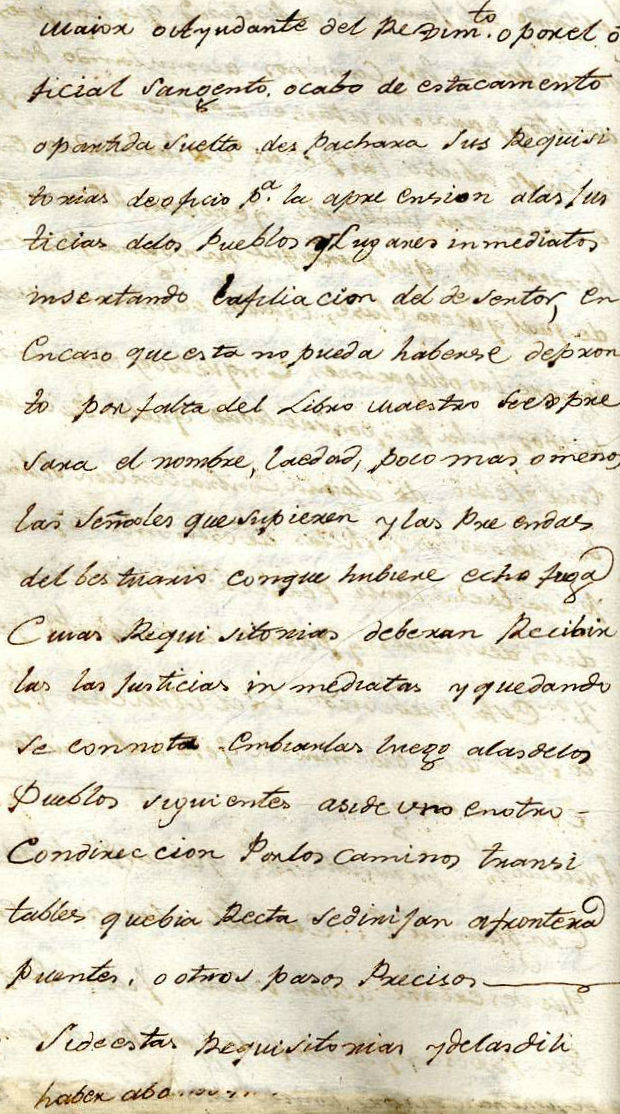 maior o Ayudante del Rexim.to o por el o
ficial Sargento, o cabo de estacamento
o partida Suelta des Pachara Sus Requisi
torias de oficio p.a la apre ension a las Jus
ticias delos Pueblos y Lugares inmediatos
insertando la filia cion del de sentor, en
Encaso que esta no pueda haberse depron
to por falta del Libro maestro Seexpre
sara el nombre, la edad, poco mas o menos
las señales que supieren y las Pre endas
del bes tuario conque hubiere echo fuga
Cuias Requi sitorias deberan Recibir
las las Justicias in mediatas y quedando
se con nota Embiarlas luego alas delos
Pueblos siguientes aside uno en otro -
Condirec cion Por los Caminos transi
tables quebia Recta sedirijan a frontera
Puentes, o otros pasos Precisos
Side estas Requisitorias y delas dili
haber abo